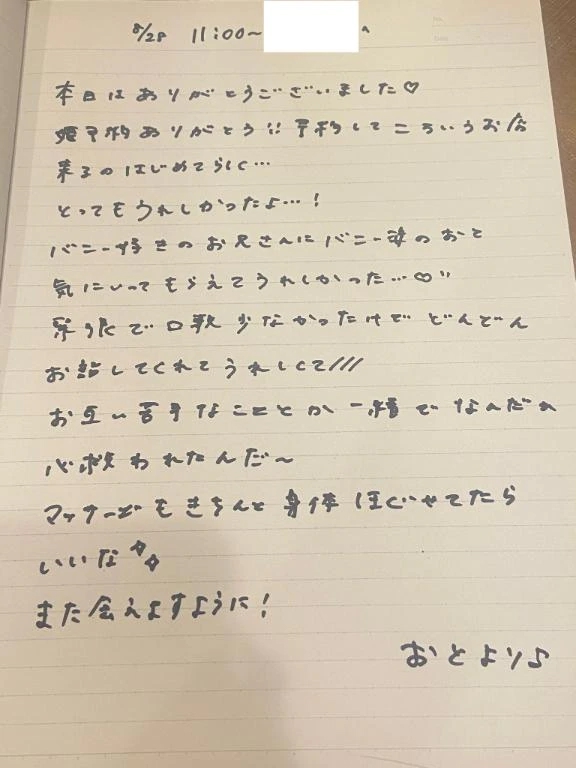 8/28 11:00~
本日はありがとうございました♡
姫予約ありがとう!! 予約してこういうお店
来るのはじめてらしく…
とってもうれしかったよ…!
バニー好きのお兄さんにバニー姿のおと
気にいってもらえてうれしかった…♡"
緊張で口数少なかったけど どんどん
お話してくれてうれしくて///
お互い苦手なこととか一緒でなんだか
心救われたんだ~
マッサージもきちんと身体ほぐせてたら
いいな
また会えますように!
おとより♪